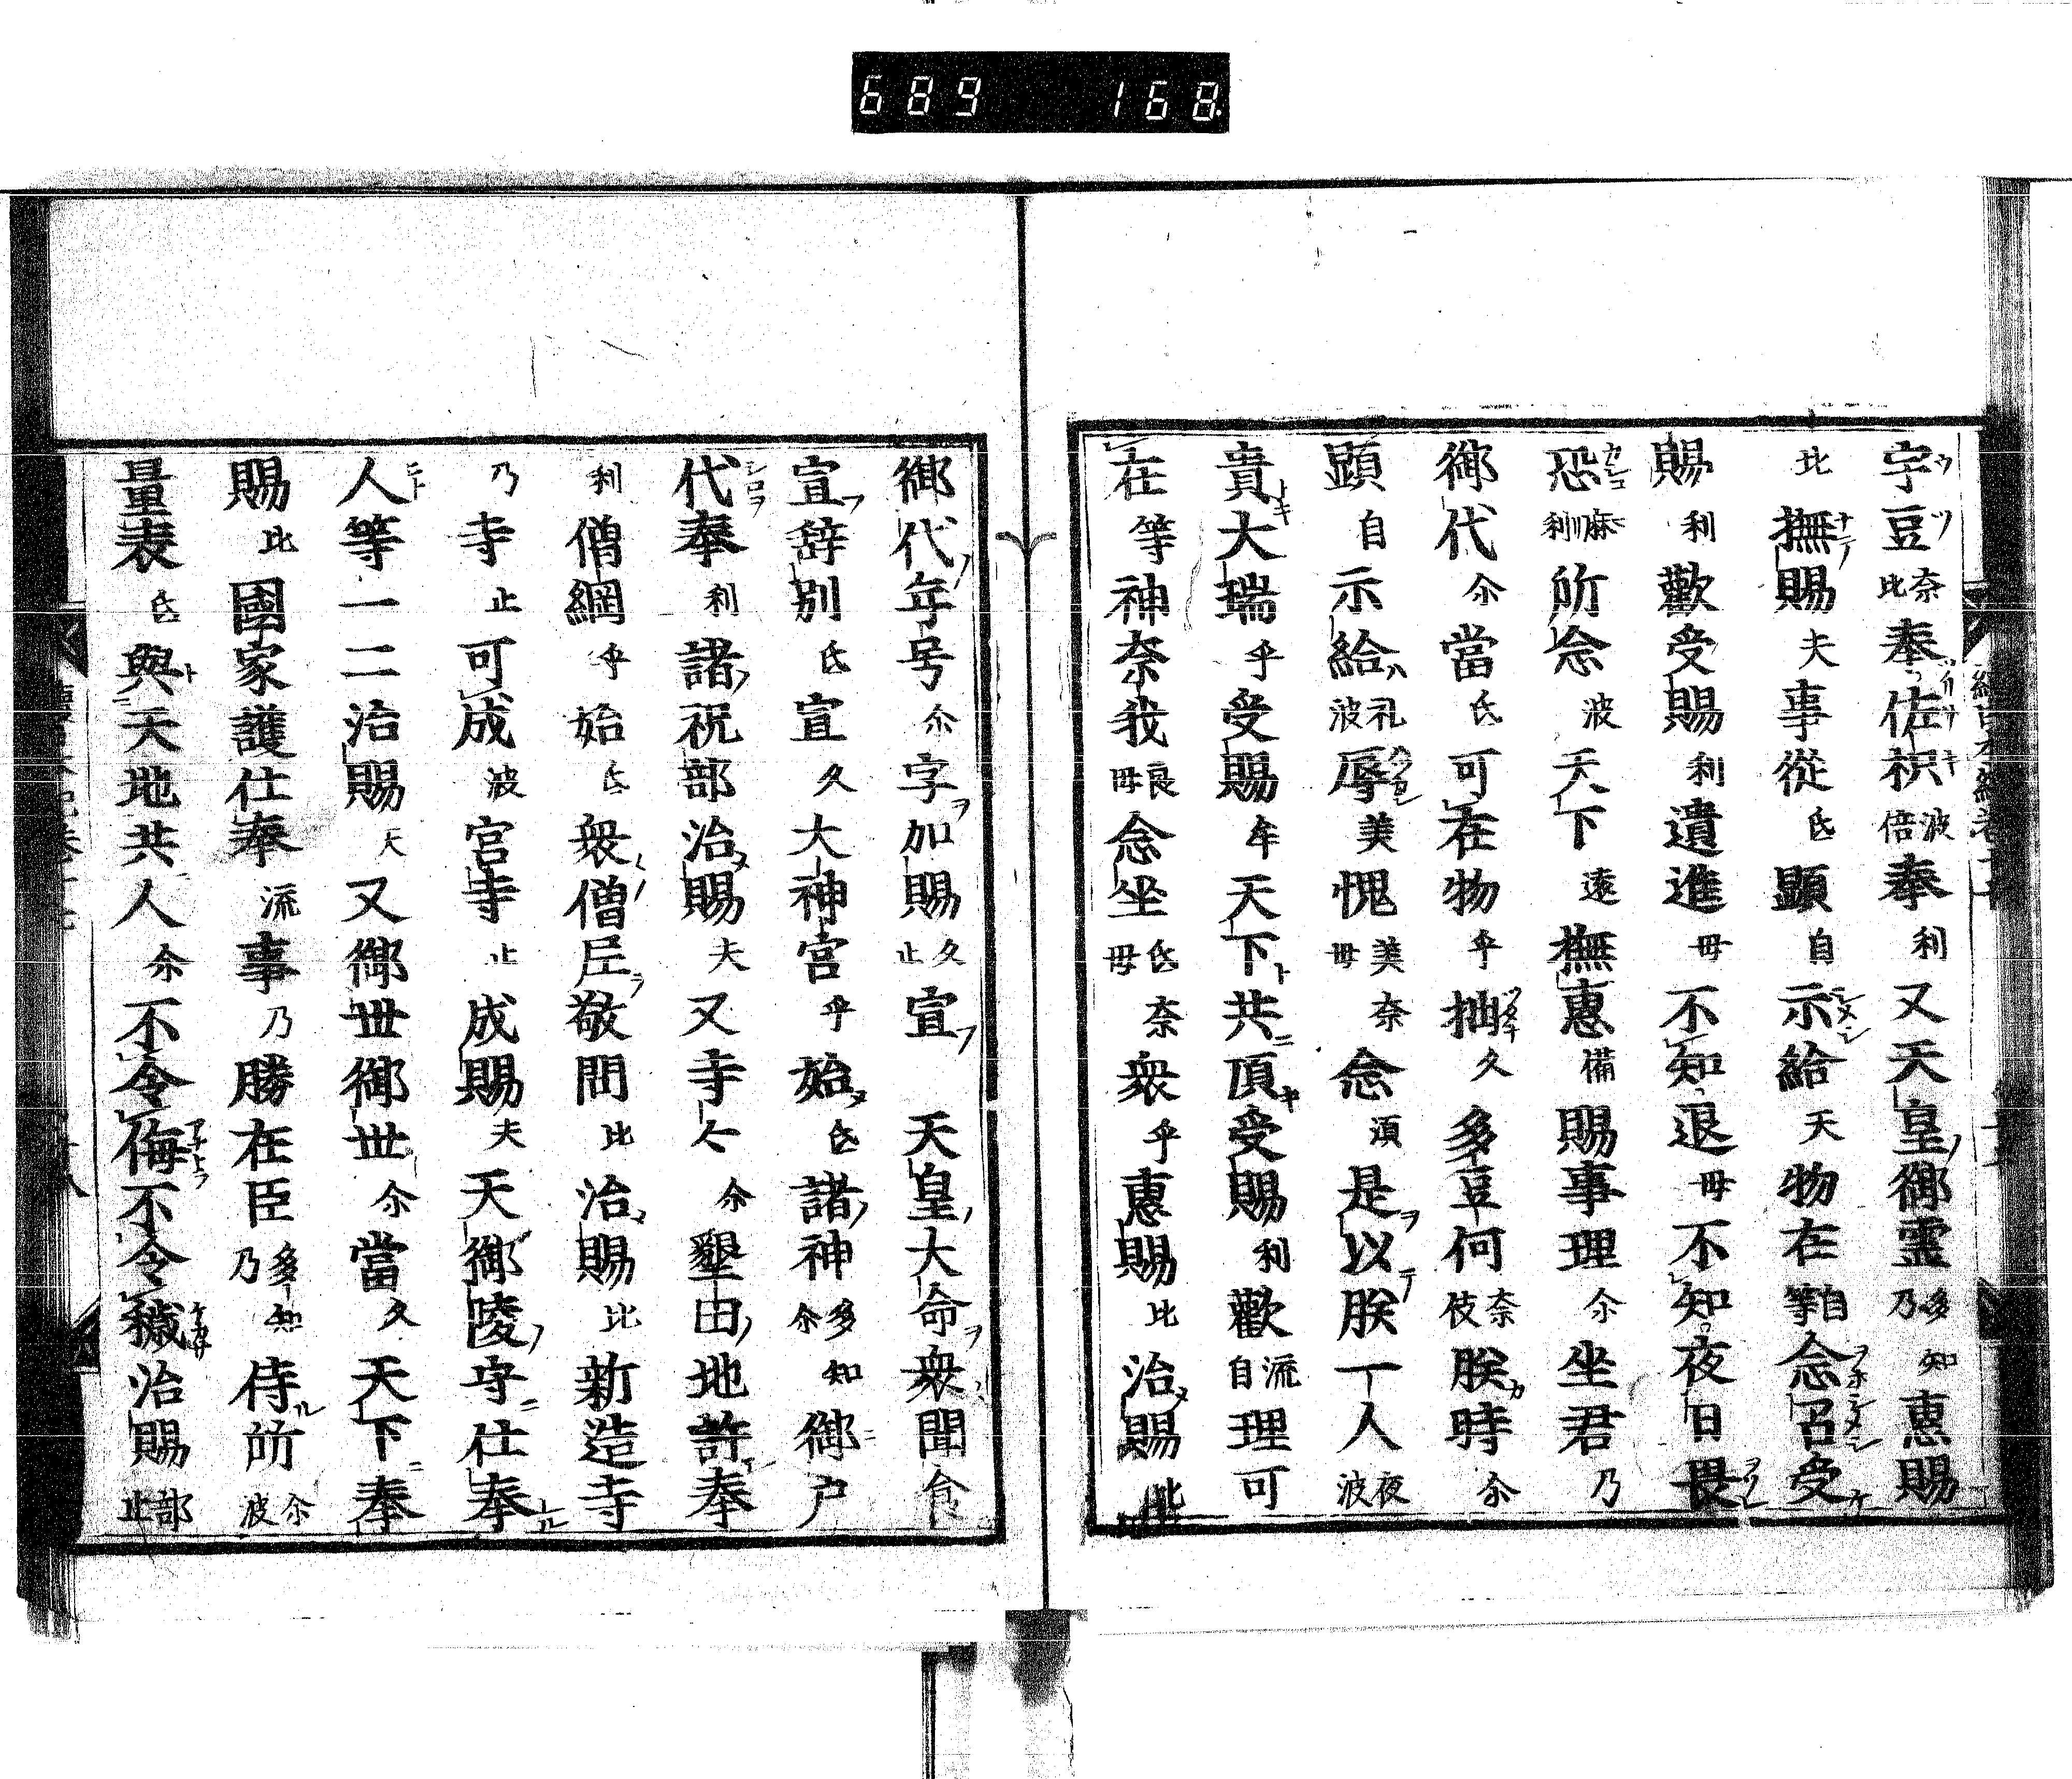 689 168
宇豆奈比奉佐枳波倍奉利又天皇御霊多知乃恵賜
比撫賜夫事從氐顕自示給天物在自等念召受
賜利歡受賜利遺進毋不知退毋不知夜日畏
恐麻利所念波天下遠撫惠備賜事理尓坐君乃
御代尓當氐可在物乎拙久多豆何奈伎朕時尓
顕自示給礼波辱美愧美毋奈念湏是以朕一人夜波
貴大瑞乎受賜牟天下共頂受賜利歡流自理可
在等神奈我良毋念坐氐毋奈衆乎惠賜比治賜比
御代年号尓字加賜久止宣 天皇大命衆聞食
宣辞別氐宣久大神宮乎始氐諸神多知尓御戸
代奉利諸祝部治賜夫又寺々尓墾田地許奉
利僧綱乎始氐衆僧尼敬問比治賜比新造寺
乃寺止可成波官寺止成賜夫天御陵守仕奉
人等一二治賜天又御世御世尓當久天下奉
賜比國家護仕奉流事乃勝在臣多知乃侍所尓波
量表氐與天地共人尓不令侮不令穢治賜部止